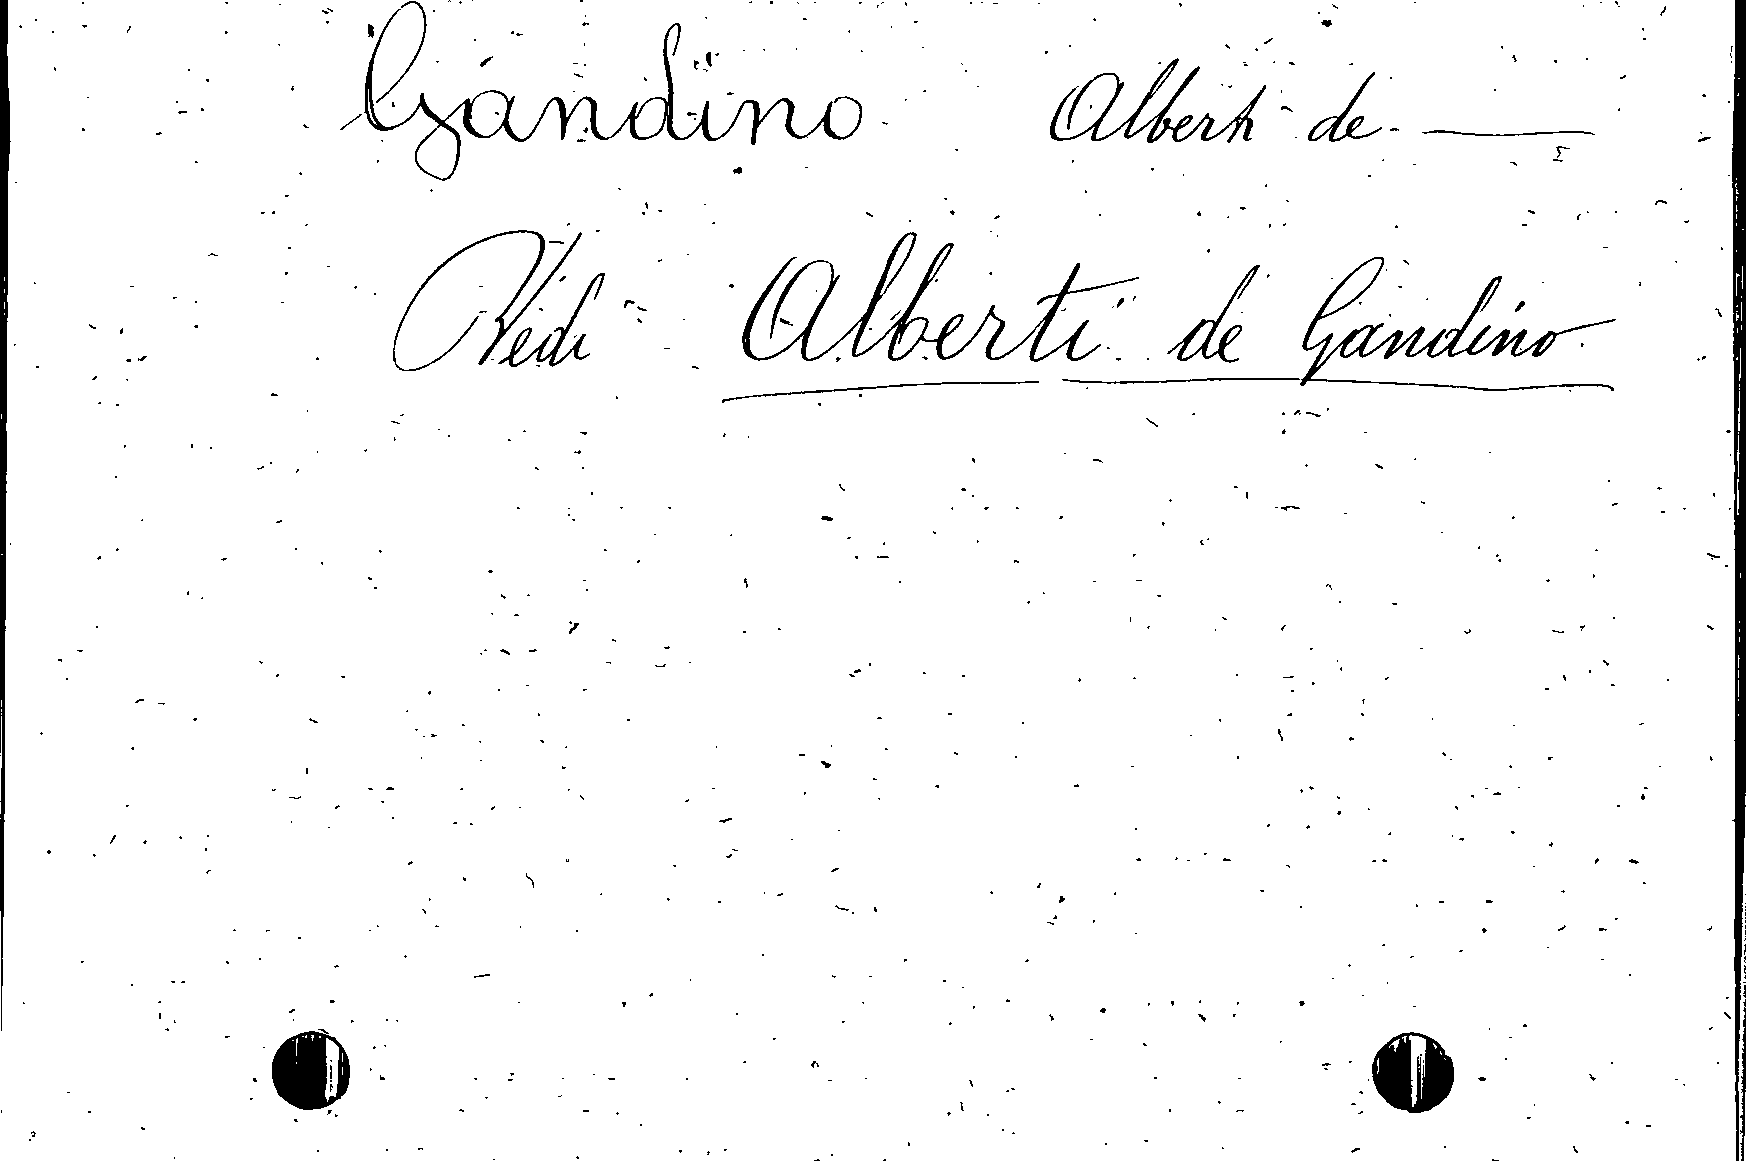 Gandino Alberti de ———
Vedi Alberti de Gandino